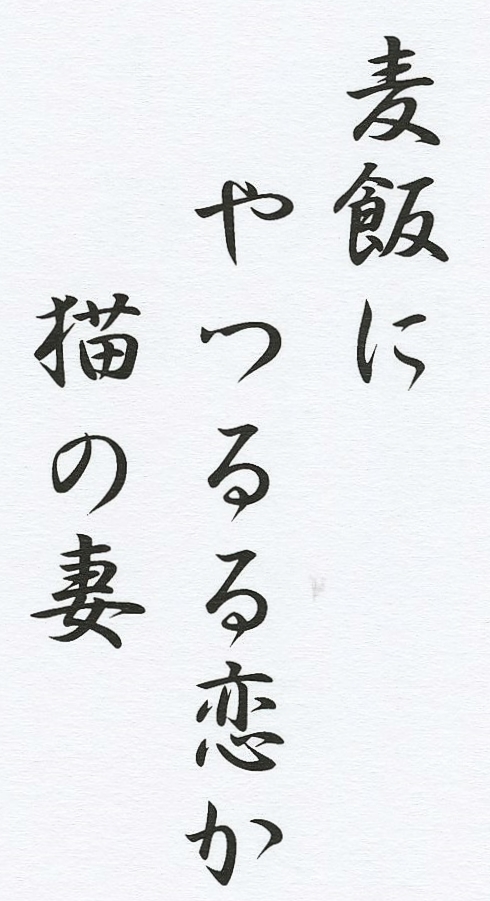 麦飯に
やつるる恋か
猫の妻